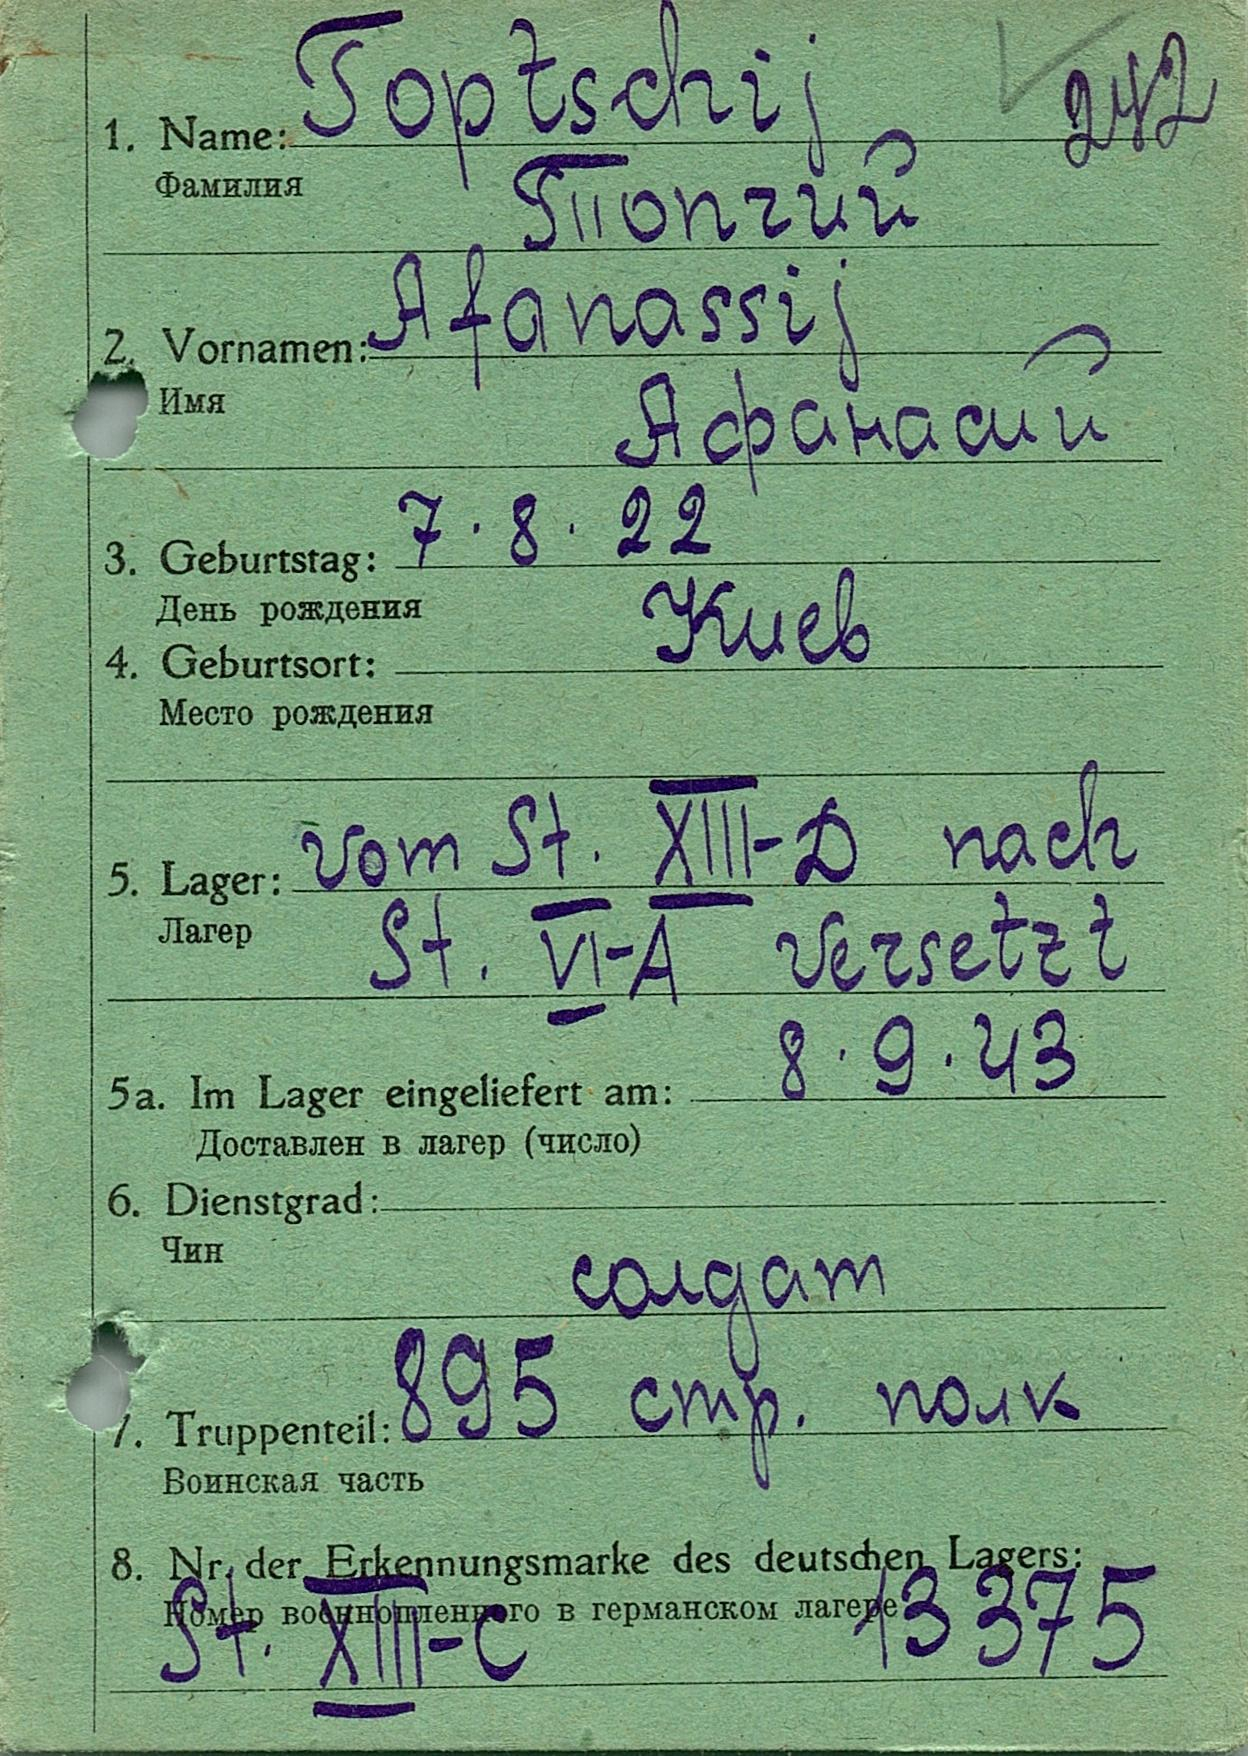 242
1. Name: Toptschij
Фамилия
Топчий
2. Vornamen: Afanassij
Имя
Афанасий
3. Geburtstag: 7.8.22
День рождения
Киев
4. Geburtsort:
Место рождения
5. Lager: vom St. XIII-D nach
Лагер
St. VI-A versetzt
5a. Im Lager eingeliefert am: 8.9.43
Доставлен в лагер (число)
6. Dienstgrad:
Чин
солдат
7. Truppenteil: 895 стр. полк
Воинская часть
8. Nr. der Erkennungsmarke des deutschen Lagers:
Номер военнопленного в германском лагере
St. XIII-C 13375